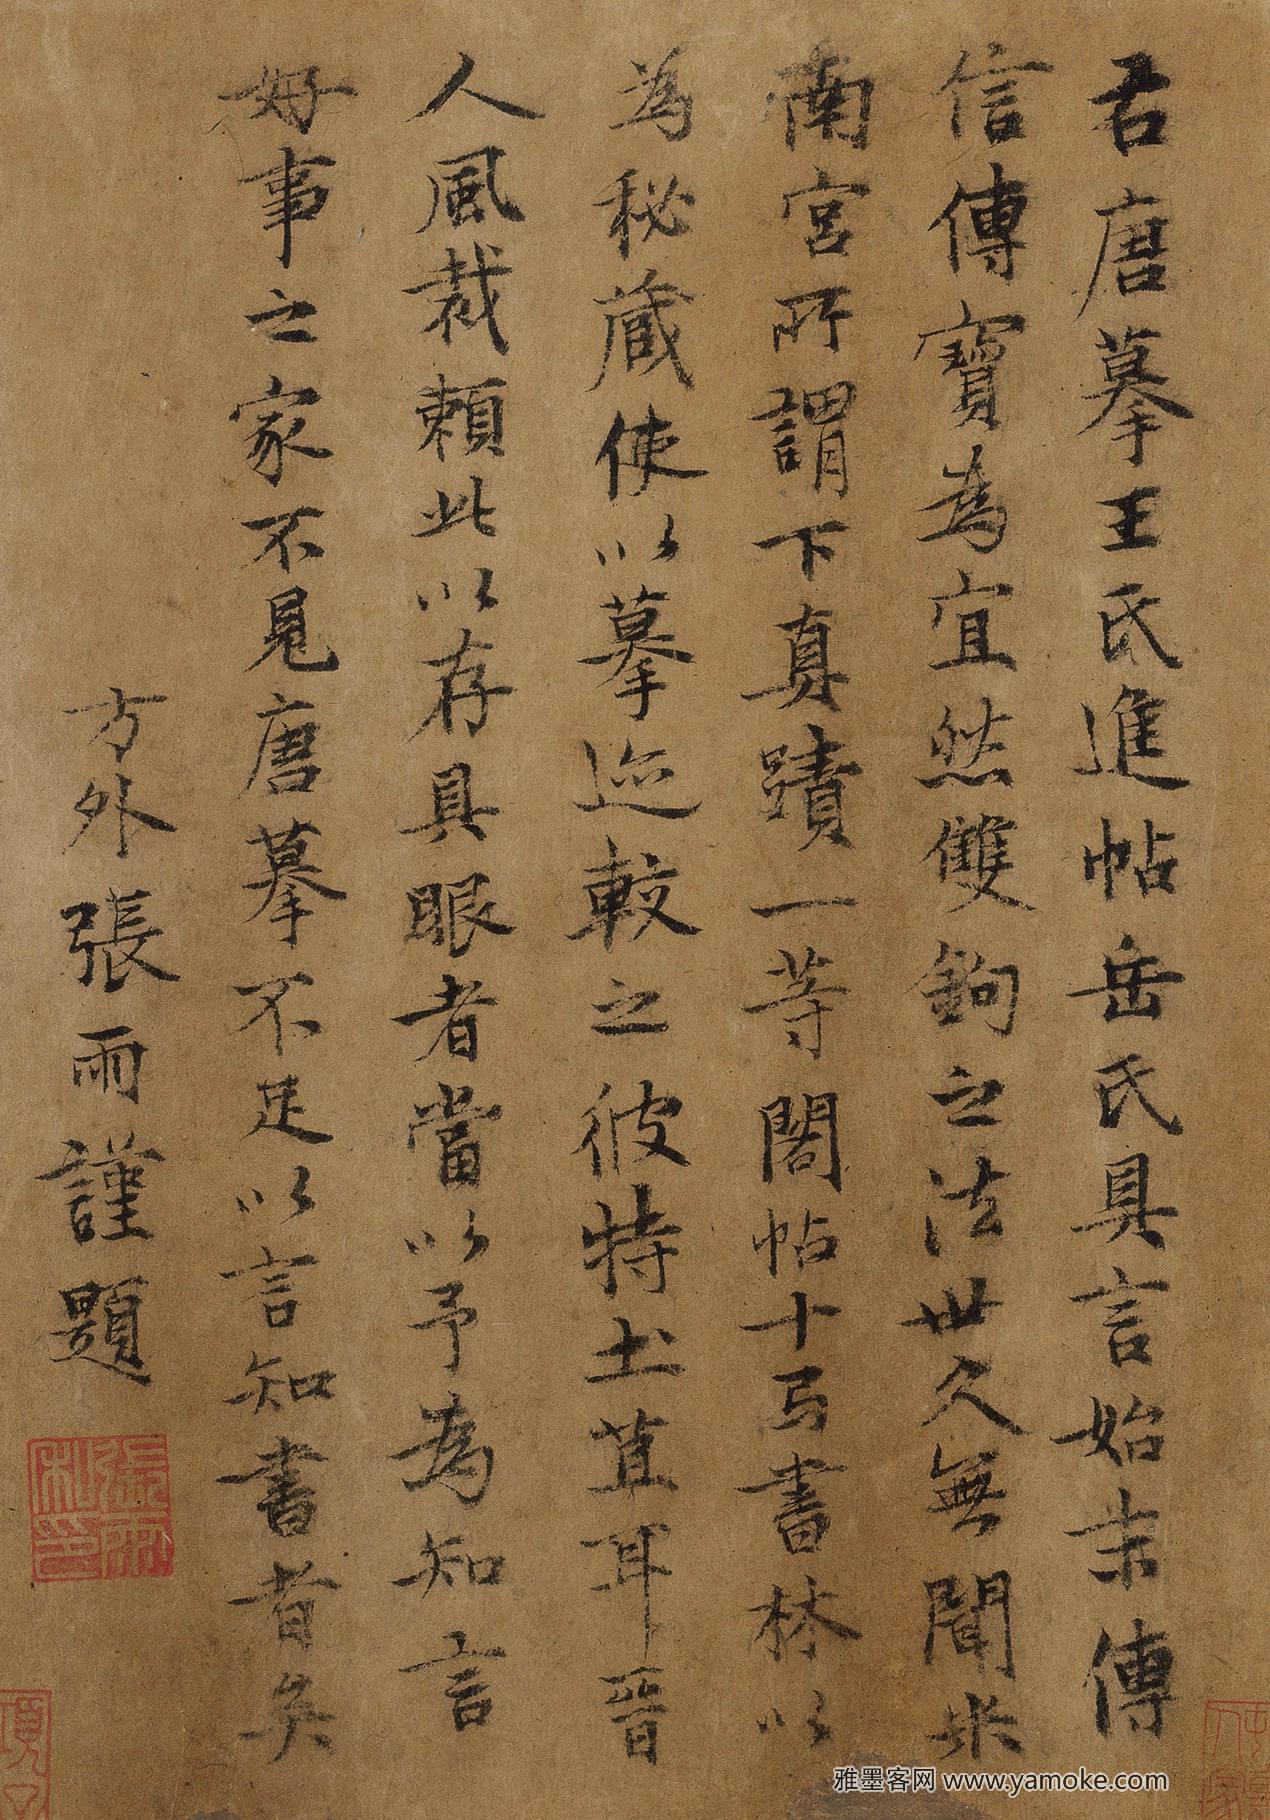 右唐摹王氏進帖岳氏具言始末傳
信傳寶為宜然雙鉤之法世久無聞米
南宮所謂下真蹟一等閣帖十弓書林以
為秘藏使以摹迹較之彼特土苴耳晉
人風裁賴此以存具眼者當以予為知言
好事之家不見唐摹不足以言知書者矣
方外張雨謹題
張雨私印
雅墨客网 www.yamoke.com